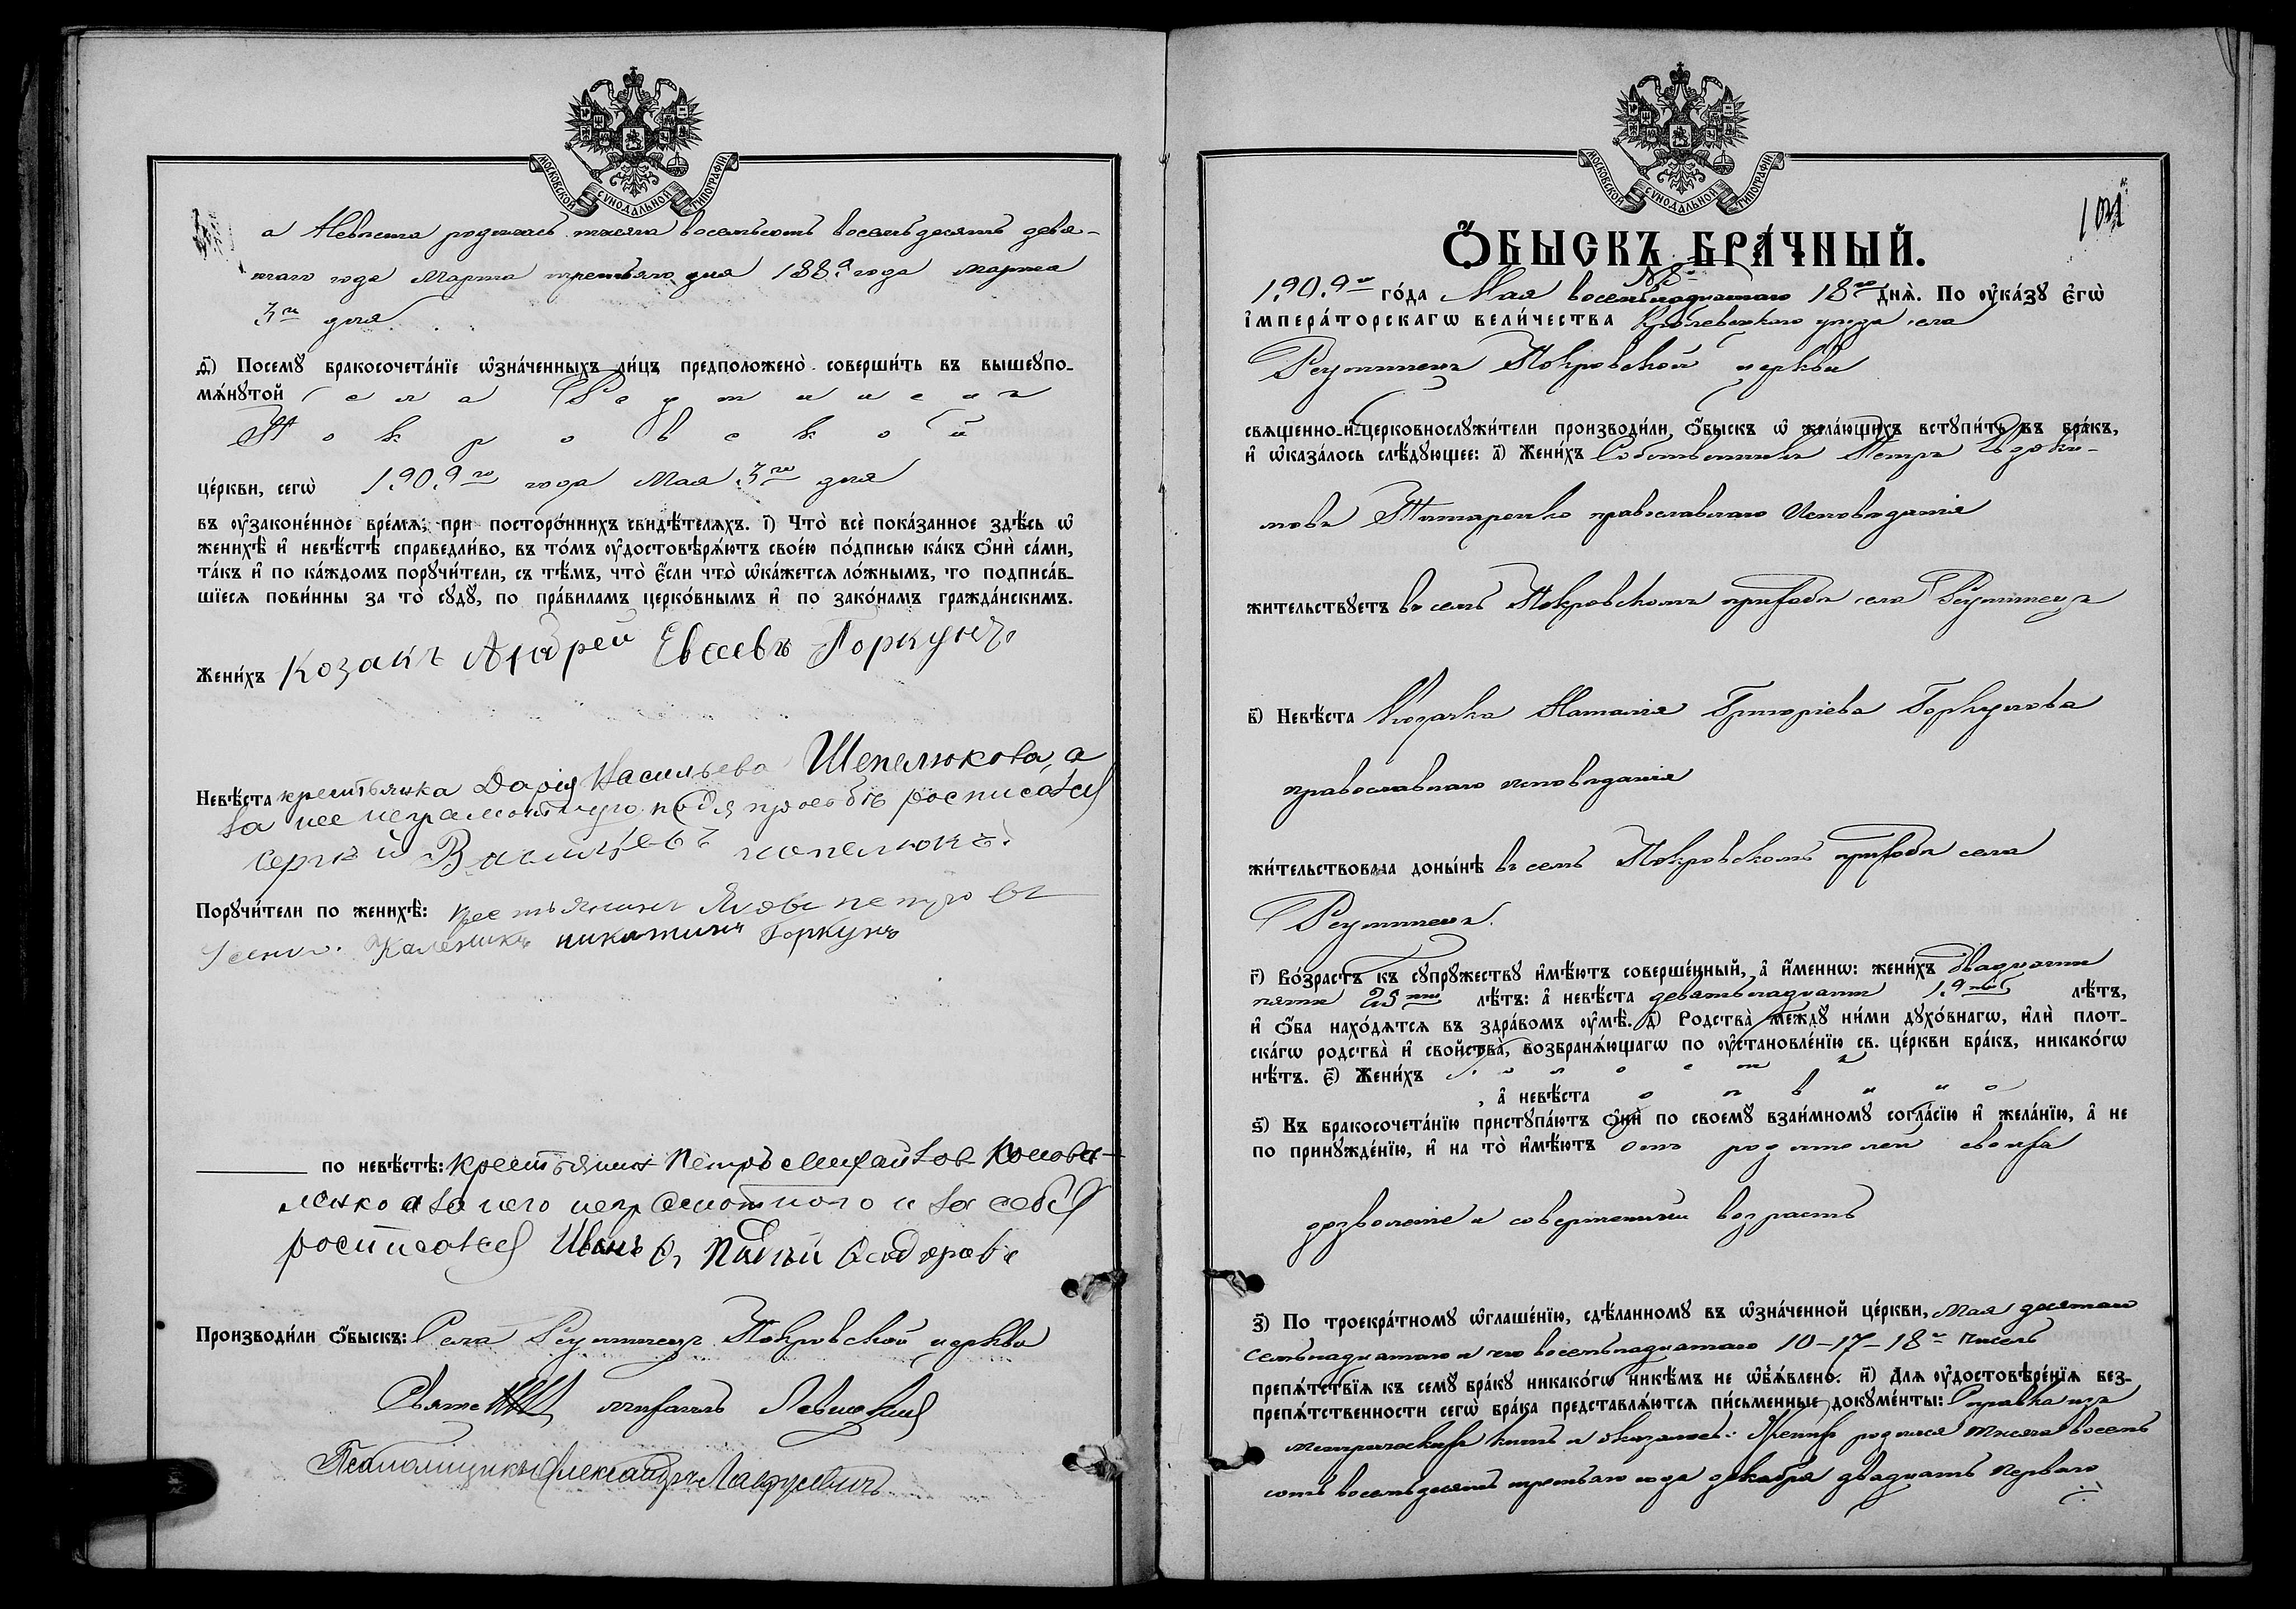 МОСКОВСКОЙ СѴНОДАЛЬНОЙ ТИПОГРАФІИ
а Невѣста родилась тысяча восемьсотъ восемьдесятъ девя-
таго года Марта третьяго дня 1889 года марта
3го дня.
ѳ҃) Посемꙋ̀ бракосочета́нїе ѡ҆зна́ченныхъ ли́цъ предположено̀ соверши́ть въ вышеꙋпо-
мѧ́нꙋтой села Реутинецъ
Покровской
це́ркви, сегѡ̀ 1909го года Мая 3го дня
въ ᲂу҆законе́нное вре́мѧ, при посторо́ннихъ свидѣ́телѧхъ. і҃) Что̀ всѐ пока́занное здѣ́сь ѡ҆
женихѣ̀ и҆ невѣ́стѣ справедли́во, въ то́мъ ᲂу҆достовѣрѧ́ютъ свое́ю по́дписью ка́къ ѻ҆нѝ са́ми,
та́къ и҆ по ка́ждомъ порꙋчи́тели, съ тѣ́мъ, что̀ є҆́сли что̀ ѡ҆ка́жетсѧ ло́жнымъ, то подписа́в-
шїесѧ пови́нны за то̀ сꙋдꙋ̀, по пра́виламъ церко́внымъ и҆ по зако́намъ гражда́нскимъ.
Жени́хъ Козакъ Андрей Евсеевъ Горкунъ
Невѣ́ста крестьянка Дарія Васильева Шепелюкова, а
за нее неграмотную по ея прозбѣ росписался
Сергѣй Васильевъ Шепелюкъ.
Порꙋчи́тели по женихѣ̀: крестьянинъ Яковъ
Каленикъ никитинъ Горкунъ
по невѣ́стѣ: крестьянинъ Петръ Михайлов Конова-
ленко а за него неграмотного и за себя
росписался Иванъ
Производи́ли ѻ҆́быскъ: Села Реутинецъ Покровской церкви
Свящ михаилъ Левицкій
Псаломщикъ Александръ
МОСКОВСКОЙ СѴНОДАЛЬНОЙ ТИПОГРАФІИ
ѺБЫСКЪ БРА́ЧНЫЙ.
№ 8й
1909го го́да Мая восемьнадцатаго 18го днѧ̀. По ᲂу҆ка́зꙋ Є҆гѡ̀
І҆мпера́торскагѡ вели́чества Кролевецкаго уезда села
Реутинецъ Покровской церкви
свѧщенно-и҆-церковнослꙋжи́тели производи́ли ѻ҆́быскъ ѡ҆ жела́ющихъ встꙋпи́ть въ бра́къ,
и҆ ѡ҆каза́лось слѣ́дꙋющее: а҃) Жени́хъ Собственникъ Петръ Евдоки-
мовъ Титаренко православнаго Исповѣданія
жи́тельствꙋетъ въ семъ Покровскомъ приходѣ села Реутинецъ
в҃) Невѣ́ста Козачка Наталія Григоріева Горкунова
православнаго исповѣданія
жи́тельствовала доны́нѣ въ семъ Покровскомъ приходѣ села
Реутинецъ.
г҃) Во́зрастъ къ сꙋпрꙋ́жествꙋ и҆мѣ́ютъ соверше́нный, а҆ и҆́меннѡ: жени́хъ двадцати
пяти 25ти лѣ́тъ: а҆ невѣ́ста девятьнадцати 19ти лѣ́тъ,
и҆ ѻ҆́ба нахо́дѧтсѧ въ здра́вомъ ᲂу҆мѣ̀. д҃) Родства̀ междꙋ ни́ми дꙋхо́внагѡ, и҆лѝ плот-
ска́гѡ родства̀ и҆ сво́йства, возбранѧ́ющагѡ по ᲂу҆становле́нїю св. це́ркви бра́къ, никако́гѡ
нѣ́тъ. є҃) Жени́хъ холостъ
, а҆ невѣ́ста дѣвица
ѕ҃) Къ бракосочета́нїю пристꙋпа́ютъ ѻ҆нѝ по своемꙋ̀ взаи́мномꙋ согла́сїю и҆ жела́нїю, а҆ не
по принꙋжде́нїю, и҆ на то̀ и҆мѣ́ютъ отъ родителей своихъ
дозволеніе и совершенный возрастъ
з҃) По троекра́тномꙋ ѡ҆глаше́нїю, сдѣ́ланномꙋ въ ѡ҆зна́ченной це́ркви, Мая десятаго
семьнадцатаго и восемьнадцатаго 10-17-18го чиселъ
препѧ́тствїѧ къ семꙋ̀ бра́кꙋ никако́гѡ никѣ́мъ не ѡ҆б̾ѧ́влено. и҃) Длѧ ᲂу҆достовѣре́нїѧ без-
препѧ́тственности сегѡ̀ бра́ка представлѧ́ютсѧ пи́сьменные докꙋме́нты: Справка изъ
метрическихъ книгъ и оказалось: Женихъ родился тысяча восемь
сотъ восемьдесятъ третьяго года декабря двадцать перваго